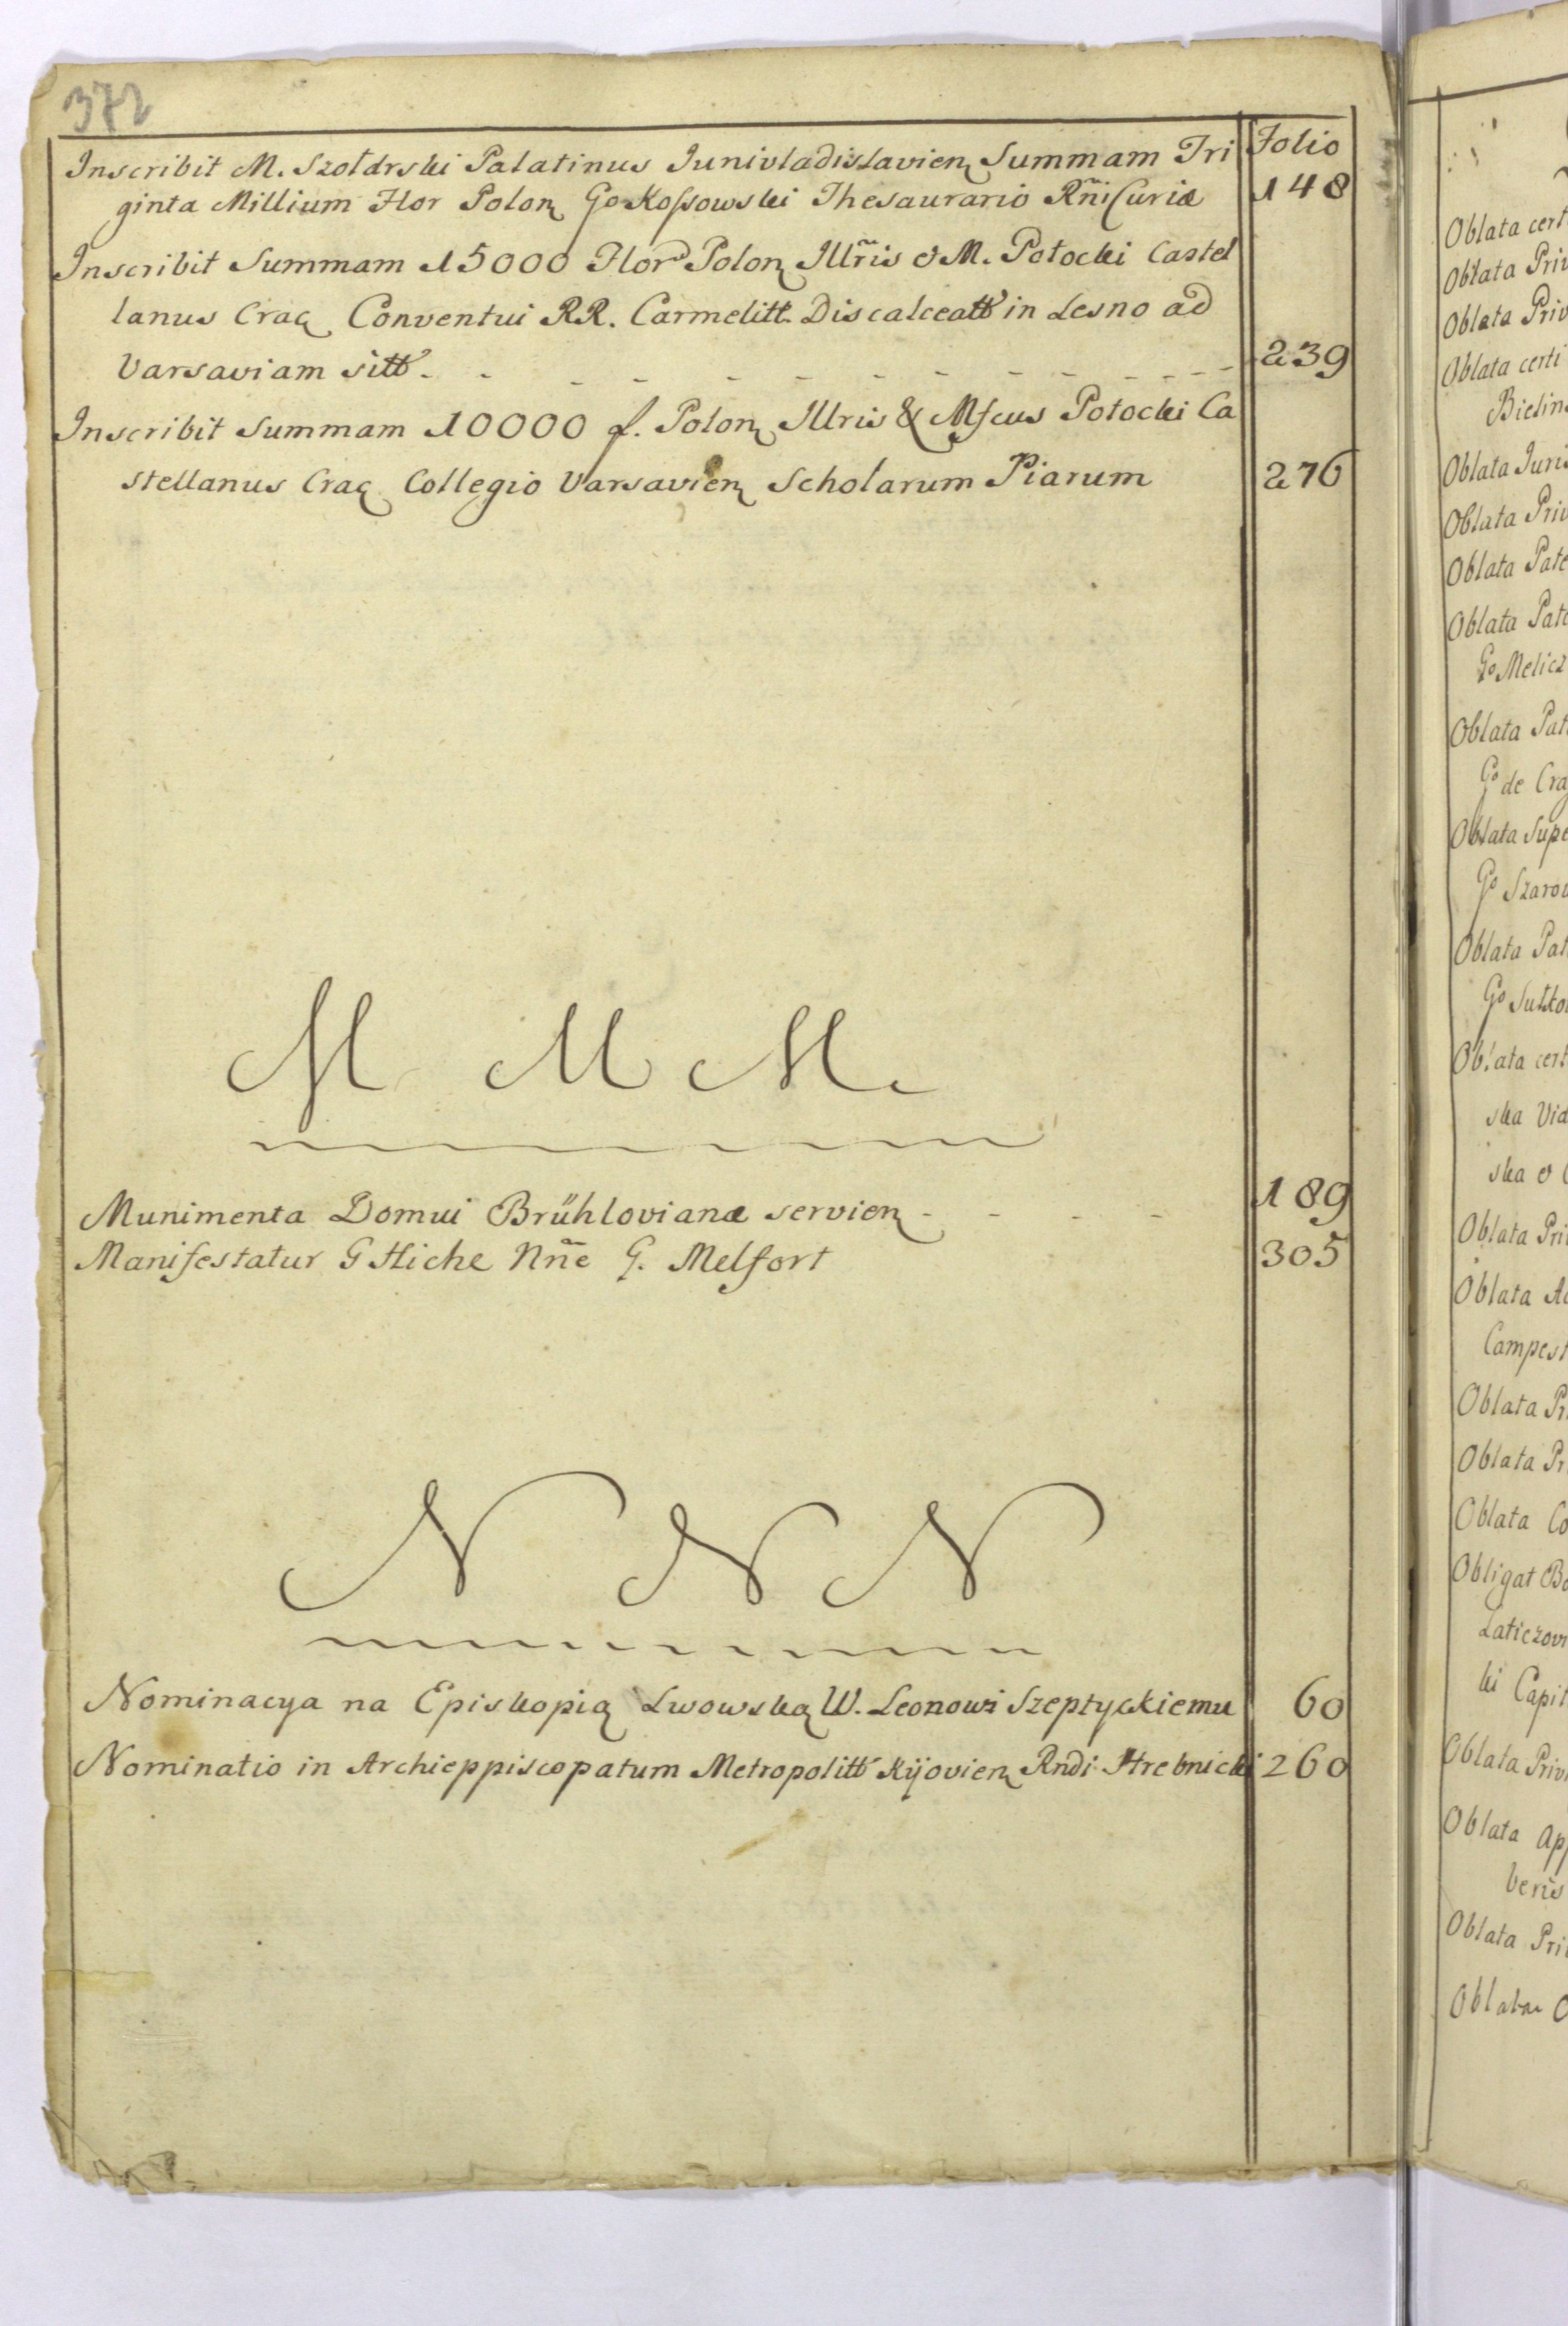 372
Folio
Inscribit M. Szołdrski Palatinus Junivladislavien Summam Tri
ginta Millium Flor Polon Go Kossowski Thesaurario Rñi Curiæ 148
Inscribit Summam 15000 Flor Polon Illr̃is & M. Potocki Castel
lanus Crac Conventui RR. Carmelitt. Discalceatt in Lesno ad
Varsaviam sitt - - - - - - - - - - - - 239
Inscribit Summam 10000 f. Polon Illris & Mfcus Potocki Ca
stellanus Crac Collegio Varsavien Scholarum Piarum 276
M M M
Munimenta Domui Brühlovianæ servien - - - - 189
Manifestatur G Hiche Nñe G. Melfort 305
N N N
Nominacya na Episkopią Lwowską W. Leonowi Szeptyckiemu 60
Nominatio in Archieppiscopatum Metropolitt Kijovien Rndi Hrebnicki 260
Oblata cert
Oblata Pri
Oblata Priv
Oblata certi
Bielin
Oblata Juri
Oblata Priv
Oblata Pate
Oblata Pate
Go Melicz
Oblata Pat
Go de Cra
Oblata Supe
Go Szaro
Oblata Pat
Go Sułko
Oblata cert
ska Vid
ska &
Oblata Pri
Oblata A
Campest
Oblata Pr
Oblata Pr
Oblata Co
Obligat Bo
Laticzov
ki Capit
Oblata Priv
Oblata App
beris
Oblata Pri
Oblata